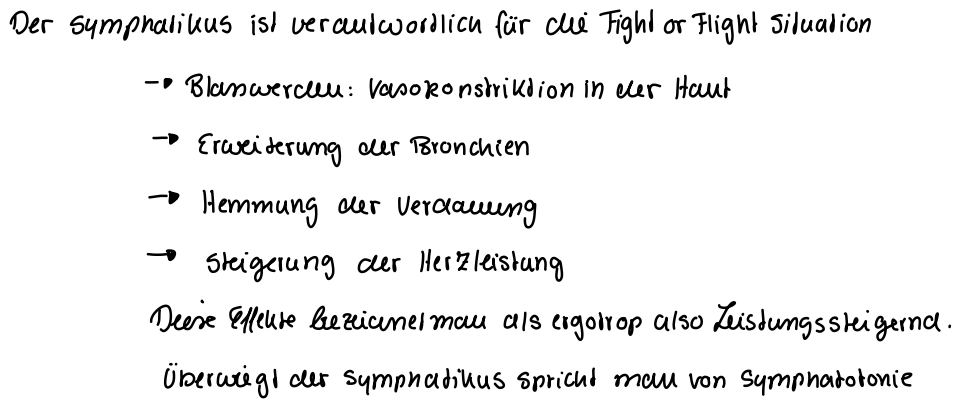 Der Symphatikus ist verantwordlich für die Fight or Flight Situation
→ Blasswerden: Vasokonstriktion in der Haut
→ Erweiterung der Bronchien
→ Hemmung der Verdauung
→ Steigerung der Herzleistung
Diese Effekte bezeichnet man als ergotrop also Leistungssteigernd.
Überwiegt der Symphatikus spricht man von Symphatotonie